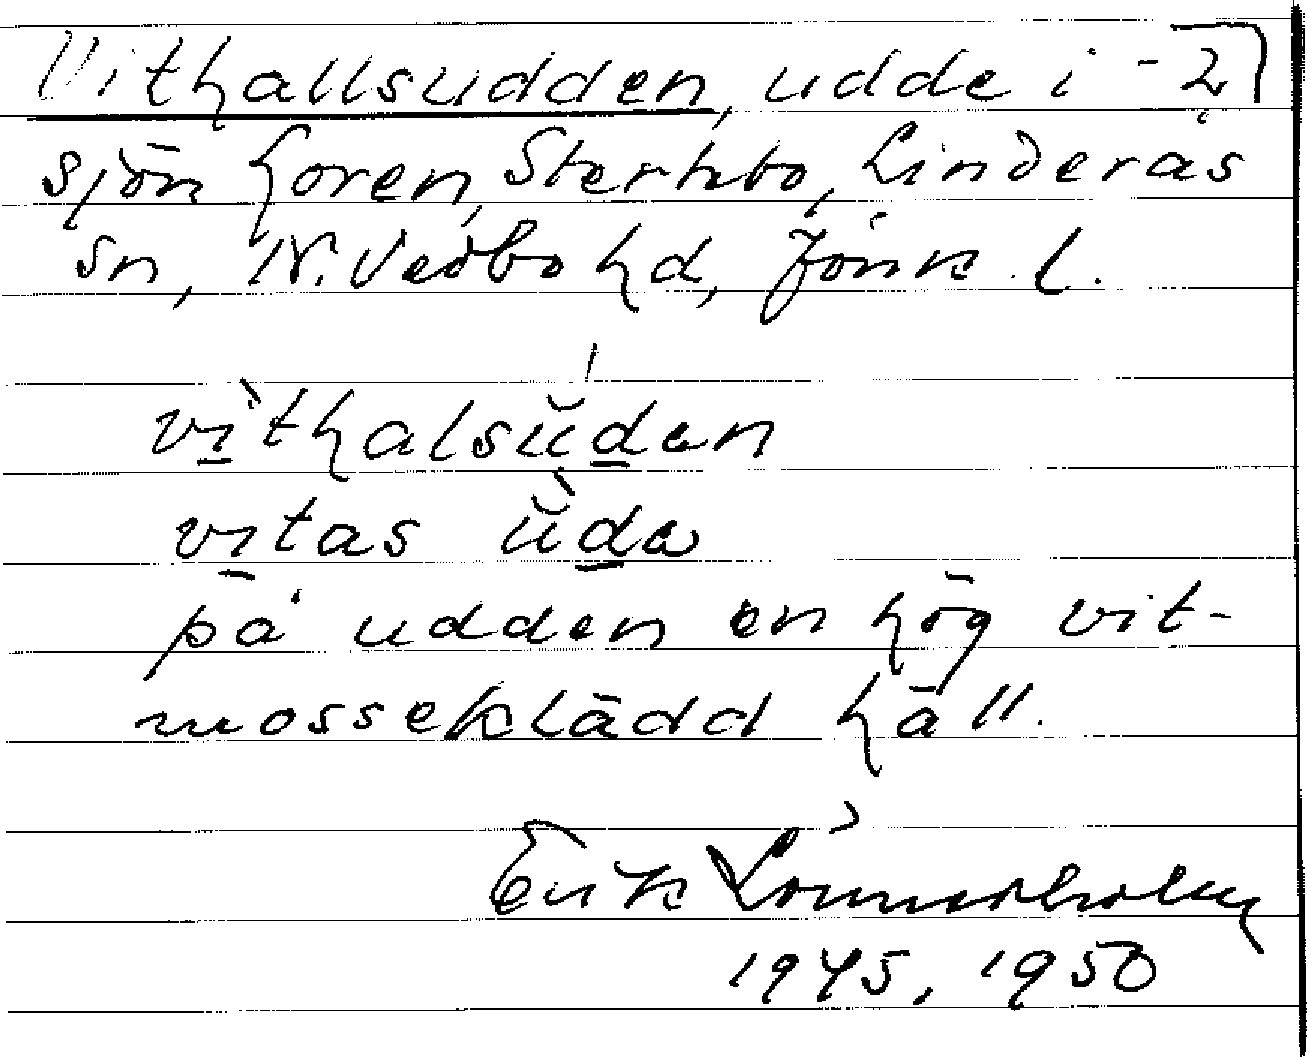 Vithallsudden, udde i -2
sjön Noren, Sterkbo, Linderås
sn, N. Vedbo hd, Jönk. l.
vìthalsŭdan
vitas ŭ̀da
på udden en hög vit-
mosseklädd häll.
Erik Lönnerholm
1945, 1950